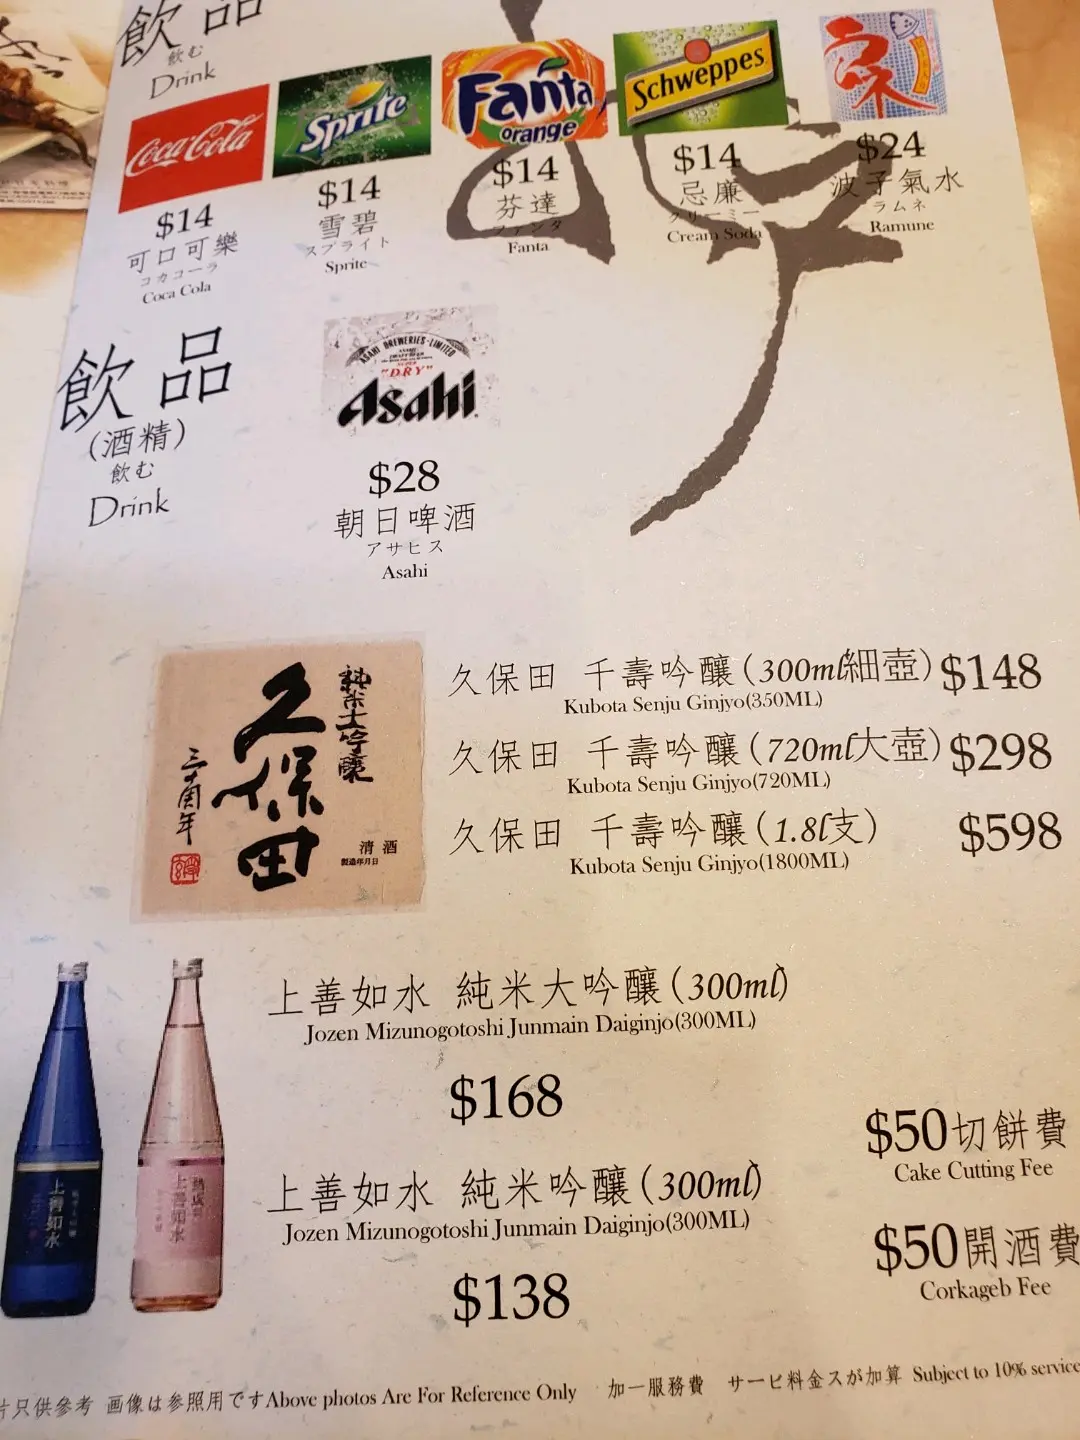 飲品
飲む
Drink
Coca-Cola
$14
可口可樂
コカコーラ
Coca Cola
Sprite
$14
雪碧
スプライト
Sprite
Fanta
orange
$14
芬達
ファンタ
Fanta
Schweppes
$14
忌廉
クリーミー
Cream Soda
$24
波子氣水
ラムネ
Ramune
飲品
(酒精)
飲む
Drink
ASAHI BREWERIES·LIMITED
"DRY"
Asahi
$28
朝日啤酒
アサヒス
Asahi
純米大吟醸
久保田
三十周年
清酒
製造年月日
久保田 千壽吟釀(300ml細壺) $148
Kubota Senju Ginjyo(350ML)
久保田 千壽吟釀(720ml大壺) $298
Kubota Senju Ginjyo(720ML)
久保田 千壽吟釀(1.8l支) $598
Kubota Senju Ginjyo(1800ML)
上善如水
上善如水
上善如水 純米大吟釀(300ml)
Jozen Mizunogotoshi Junmain Daiginjo(300ML)
$168
上善如水 純米吟釀(300ml)
Jozen Mizunogotoshi Junmain Daiginjo(300ML)
$138
$50切餅費
Cake Cutting Fee
$50開酒費
Corkageb Fee
片只供參考 画像は参照用ですAbove photos Are For Reference Only 加一服務費 サービ料金スが加算 Subject to 10% service